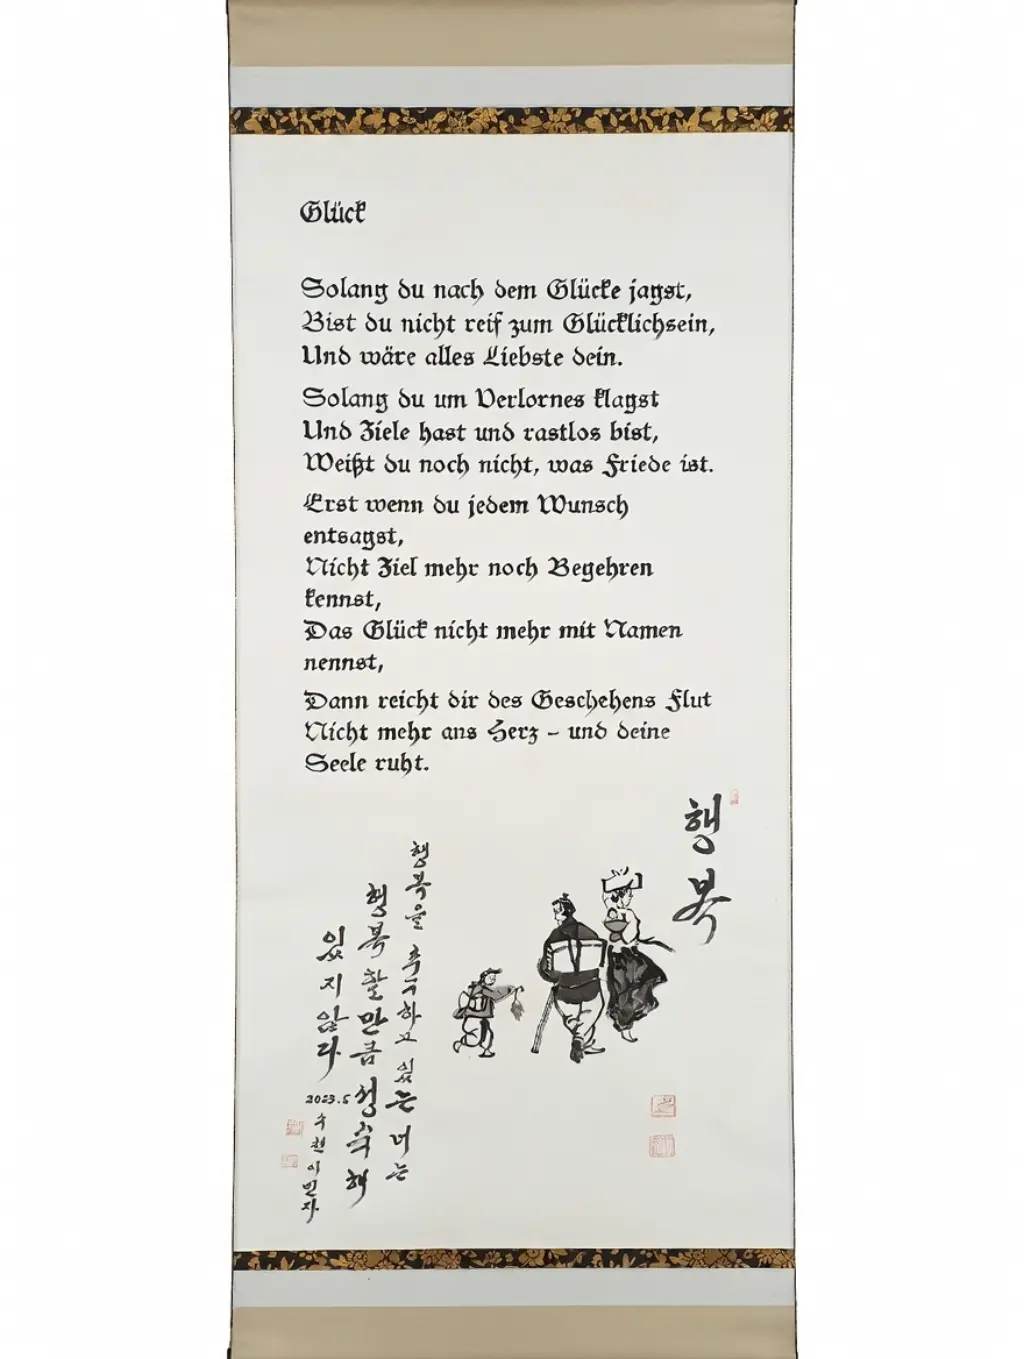 Glück
Solang du nach dem Glücke jagst,
Bist du nicht reif zum Glücklichsein,
Und wäre alles Liebste dein.
Solang du um Verlornes klagst
Und Ziele hast und rastlos bist,
Weißt du noch nicht, was Friede ist.
Erst wenn du jedem Wunsch
entsagst,
Nicht Ziel mehr noch Begehren
kennst,
Das Glück nicht mehr mit Namen
nennst,
Dann reicht dir des Geschehens Flut
Nicht mehr ans Herz – und deine
Seele ruht.
행복
행복을 추구하고 있는 너는
행복할 만큼 성숙해
있지 않다
2023.5
수현 이민자